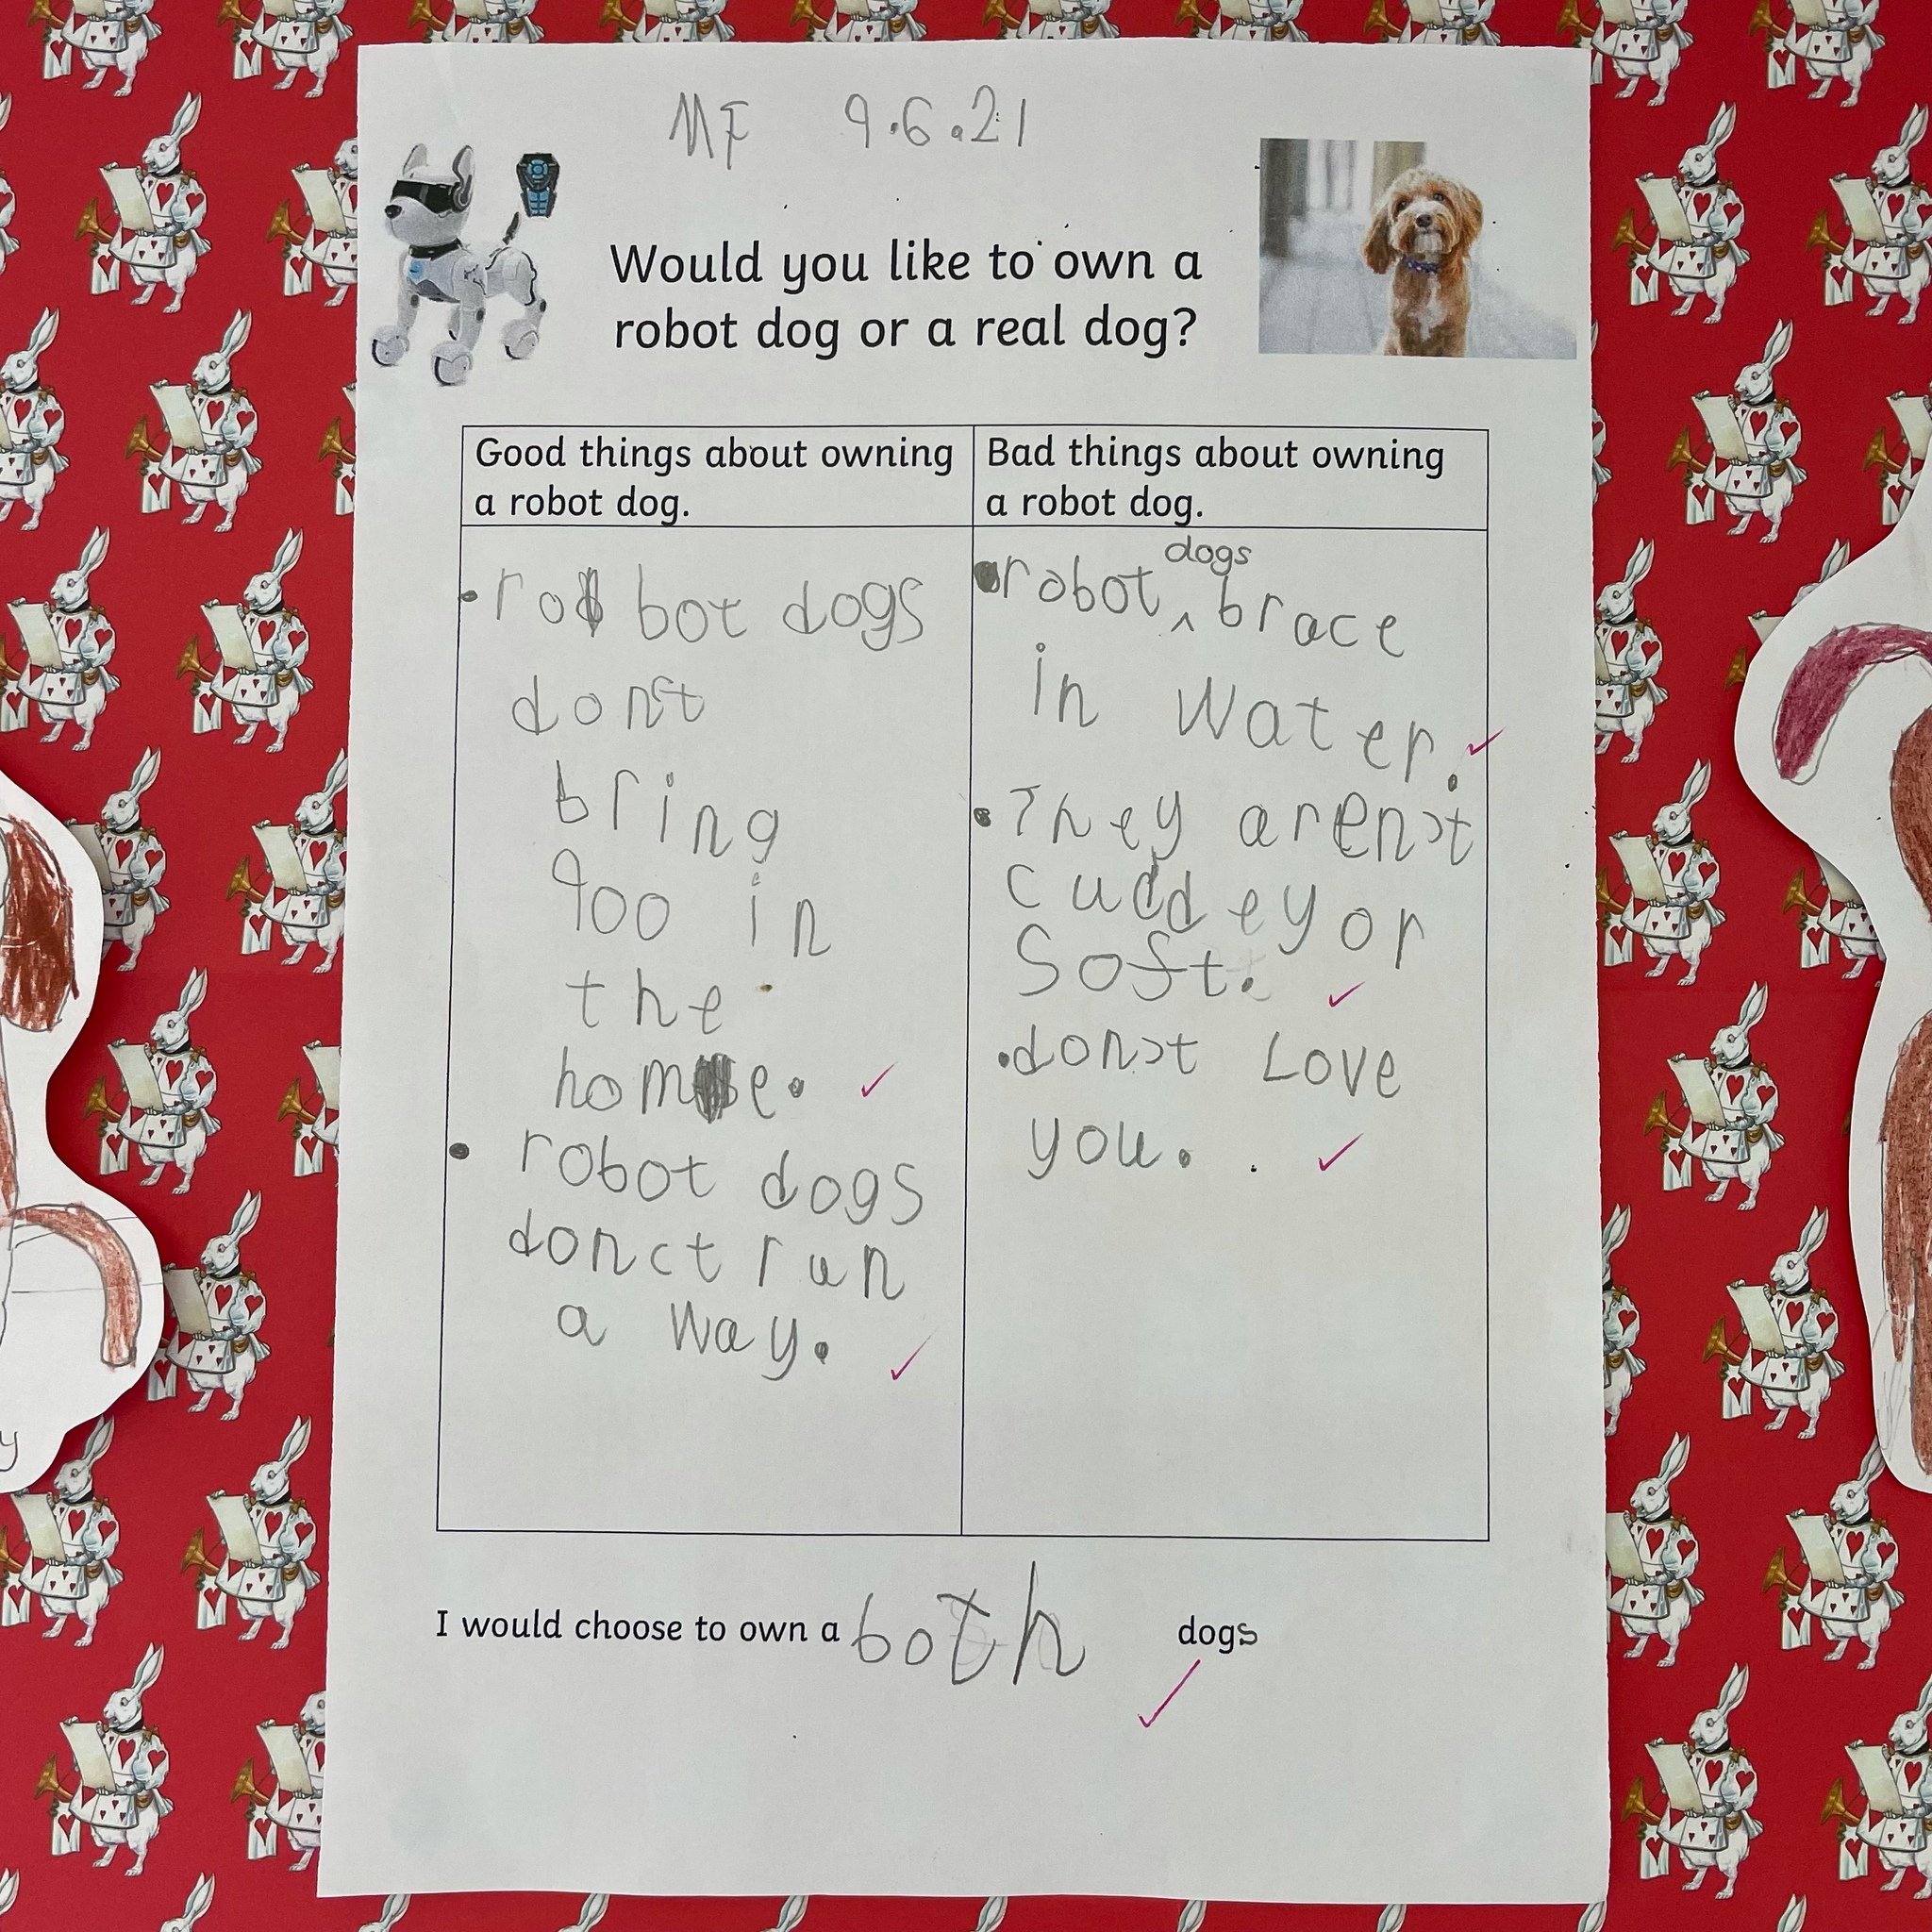 MF 9.6.21
Would you like to own a
robot dog or a real dog?
Good things about owning
a robot dog.
• ro bot dogs
don't
bring
goo in
the
home.
• robot dogs
donct run
a way.
Bad things about owning
a robot dog.
• robot dogs brace
in water.
• They aren't
cuddey or
Soft.
• don't Love
you.
I would choose to own a both dogs
y